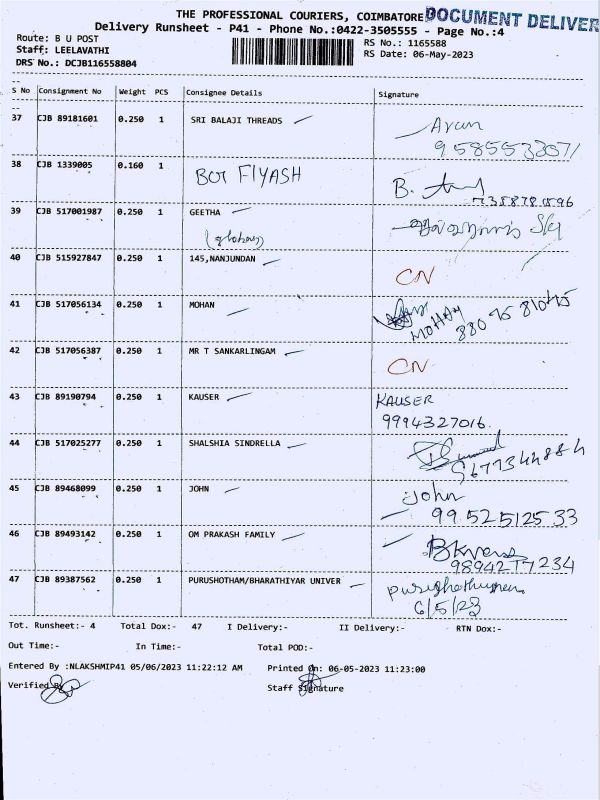 THE PROFESSIONAL COURIERS, COIMBATORE
DOCUMENT DELIVER
Delivery Runsheet - P41 - Phone No.:0422-3505555 - Page No.:4
Route: B U POST
RS No.: 1165588
Staff: LEELAVATHI
RS Date: 06-May-2023
DRS No.: DCJB116558804
S No Consignment No Weight PCS Consignee Details Signature
37 CJB 89181601 0.250 1 SRI BALAJI THREADS Arun
9585533071
38 CJB 1339005 0.160 1 BOT FIYASH B.
7358781596
39 CJB 517001987 0.250 1 GEETHA
40 CJB 515927847 0.250 1 145,NANJUNDAN CN
41 CJB 517056134 0.250 1 MOHAN MOHAN
880 75 81045
42 CJB 517056387 0.250 1 MR T SANKARLINGAM CN
43 CJB 89190794 0.250 1 KAUSER KAUSER
9994327016.
44 CJB 517025277 0.250 1 SHALSHIA SINDRELLA
9677344884
45 CJB 89468099 0.250 1 JOHN John
99525125 33
46 CJB 89493142 0.250 1 OM PRAKASH FAMILY
9894277234
47 CJB 89387562 0.250 1 PURUSHOTHAM/BHARATHIYAR UNIVER
6/5/23
Tot. Runsheet:- 4 Total Dox:- 47 I Delivery:- II Delivery:- RTN Dox:-
Out Time:- In Time:- Total POD:-
Entered By :NLAKSHMIP41 05/06/2023 11:22:12 AM Printed On: 06-05-2023 11:23:00
Verified By
Staff Signature